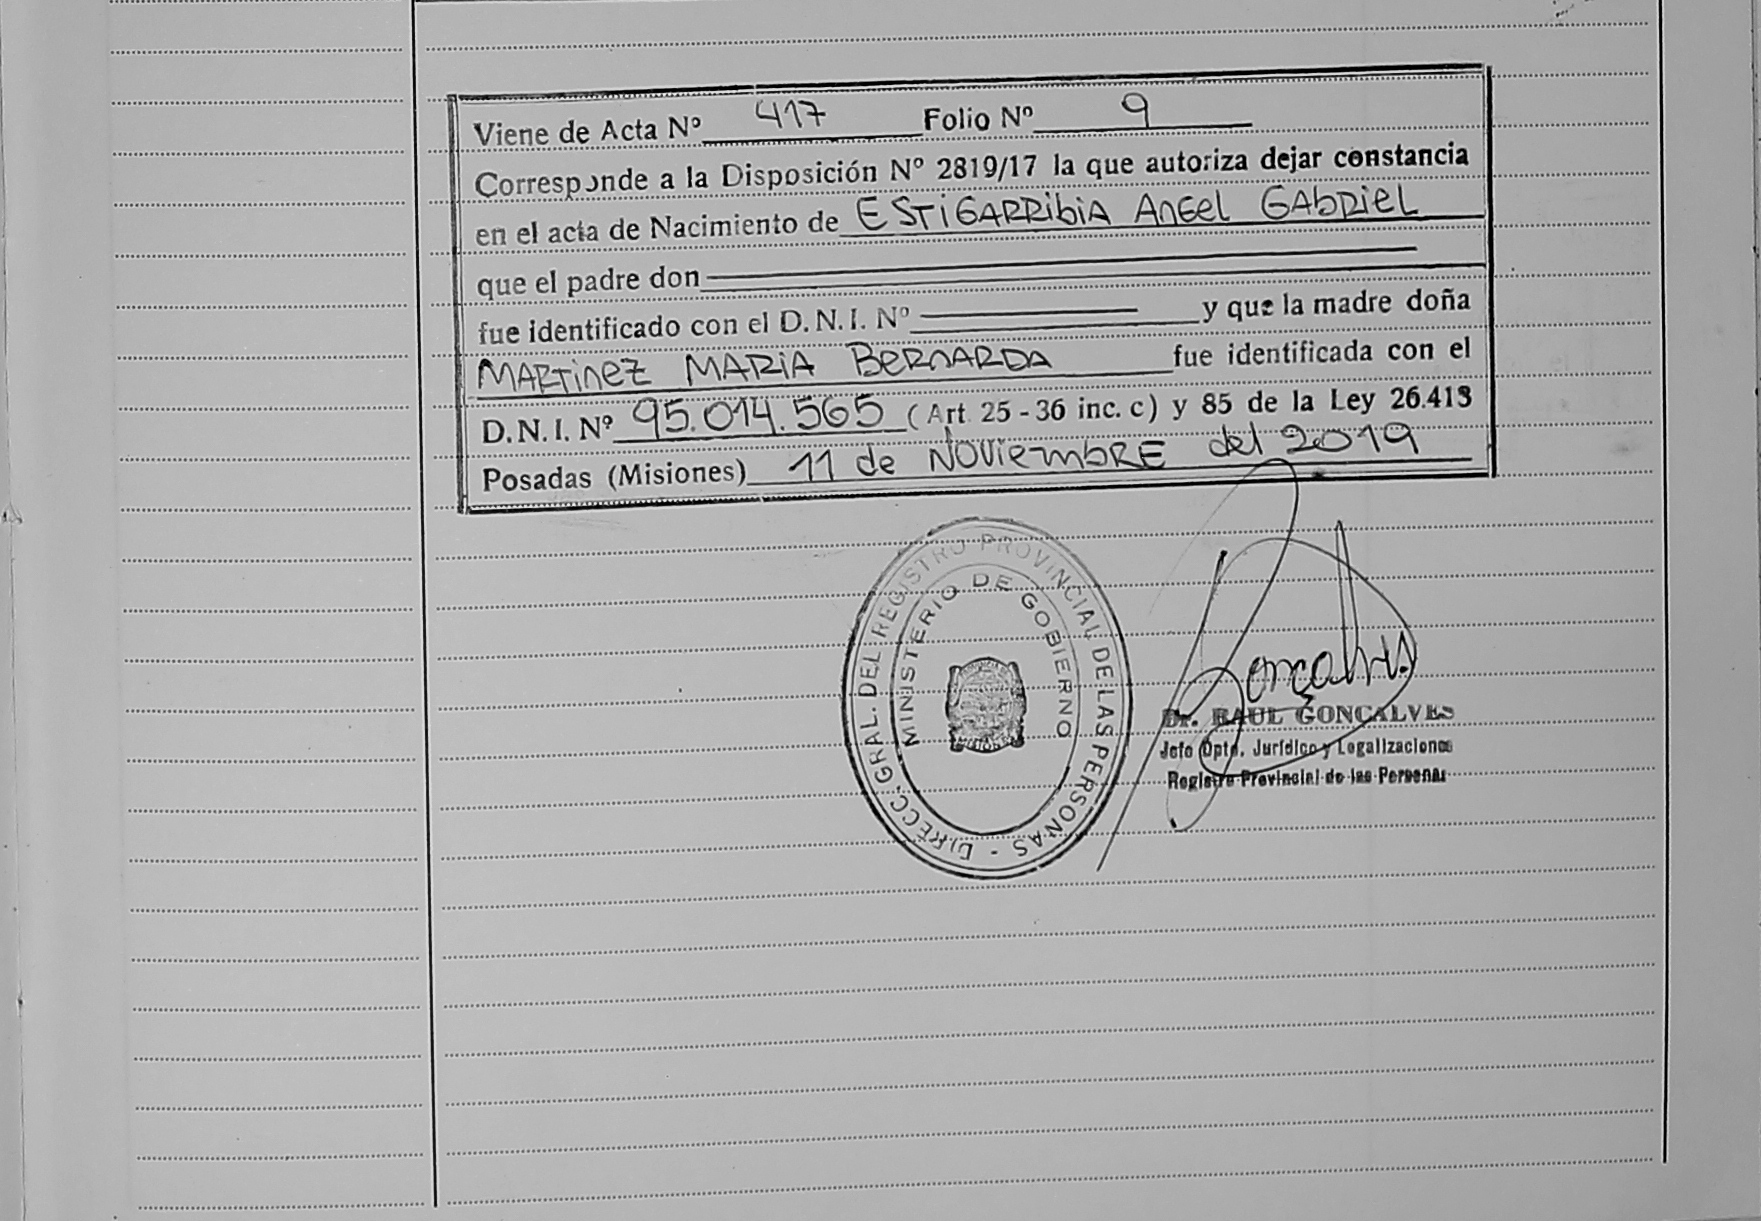 Viene de Acta Nº 417 Folio Nº 9
Corresponde a la Disposición Nº 2819/17 la que autoriza dejar constancia
en el acta de Nacimiento de ESTIGARRIBIA ANGEL GABRIEL
que el padre don
fue identificado con el D.N.I. Nº y que la madre doña
MARTINEZ MARIA BERNARDA fue identificada con el
D.N.I. Nº 95.014.565 (Art. 25 - 36 inc. c) y 85 de la Ley 26.413
Posadas (Misiones) 11 de NOViEmbRE del 2019
DIRECC. GRAL. DEL REGISTRO PROVINCIAL DE LAS PERSONAS -
MINISTERIO DE GOBIERNO
Gonçalves
Dr. RAUL GONÇALVES
Jefe Dpto. Jurídico y Legalizaciones
Registro Provincial de las Personas